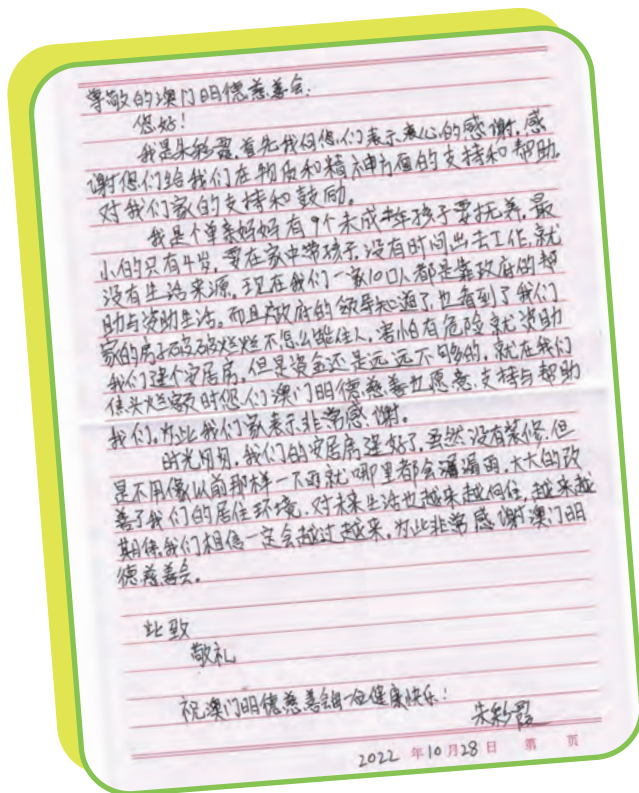 尊敬的澳门明德慈善会:
您好!
我是朱彩霞,首先我向您们表示衷心的感谢,感
谢您们给我们在物质和精神方面的支持和帮助.
对我们家的支持和鼓励.
我是个单亲妈妈有9个未成年孩子要抚养,最
小的只有4岁,要在家中带孩子,没有时间出去工作,就
没有生活来源,现在我们一家10口人都是靠政府的帮
助与资助生活。而且政府的领导知道了,也看到了我们
家的房子破破烂烂不怎么能住人,害怕有危险就资助
我们建个安居房,但是资金还是远远不够的,就在我们
焦头烂额时您们澳门明德慈善也愿意,支持与帮助
我们,为此我们家表示非常感谢。
时光匆匆,我们的安居房建好了,虽然没有装修,但
是不用像以前那样一下雨就哪里都会漏漏雨,大大的改
善了我们的居住环境,对未来生活也越来越向往,越来越
期待,我们相信一定会越过越来,为此非常感谢澳门明
德慈善会。
此致
敬礼
祝澳门明德慈善会 健康快乐!
朱彩霞
2022 年 10 月 28 日 第 页